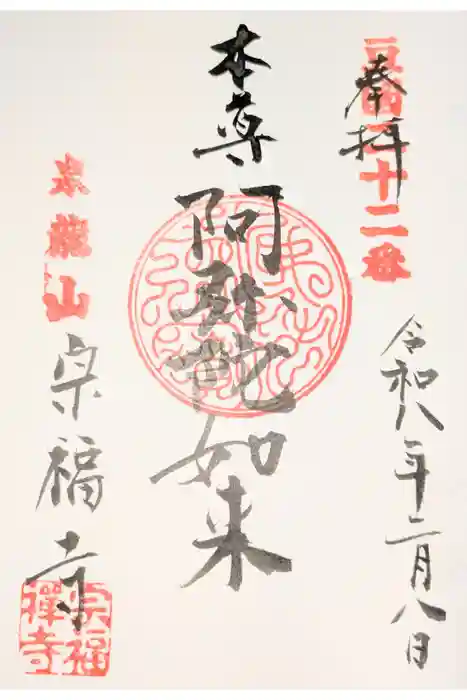 奉拝
十二番
令和八年二月八日
本尊 阿弥陀如来
泉龍山
宗福寺
宗福禅寺